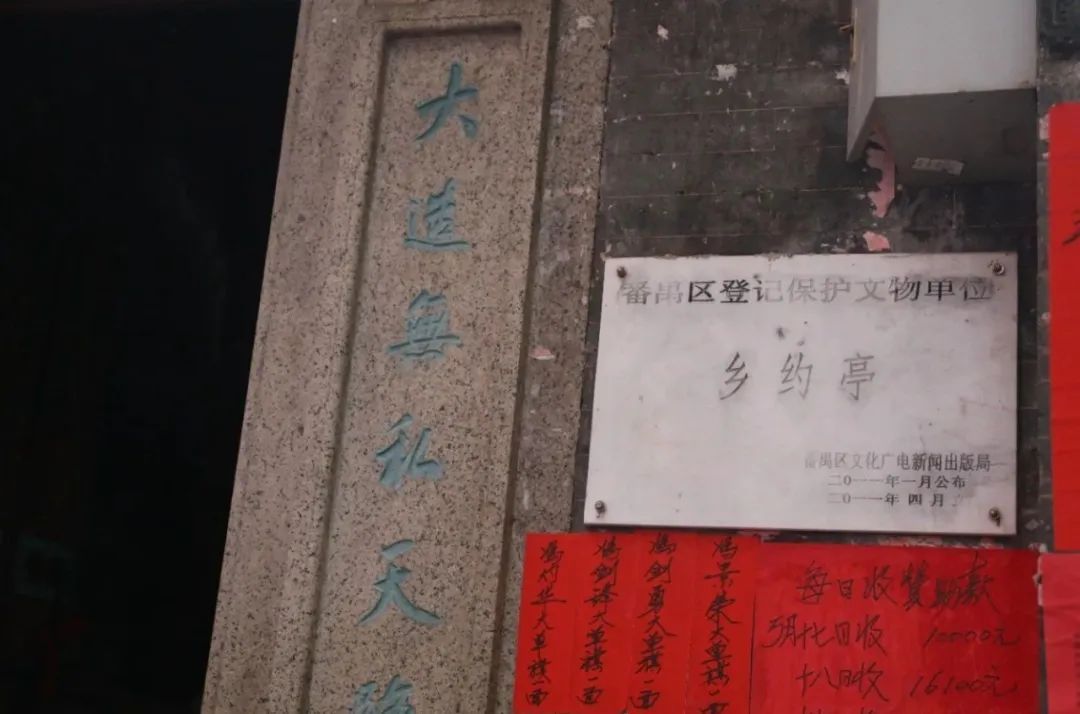 大造無私天
番禺区登记保护文物单位
乡约亭
番禺区文化广电新闻出版局
二〇一一年一月公布
二〇一一年四月
冯景荣大单旗一面
冯剑勇大单旗一面
冯剑锋大单旗一面
冯竹华大单旗一面
每日收赞助款
3月十七日收 10000元
十八日收 16100元